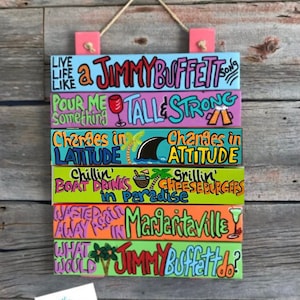 LIVE LIFE LIKE a JIMMY BUFFETT song
POUR ME Something TALL & STRONG
Changes in LATITUDE Changes in ATTITUDE
Chillin' Grillin'
BOAT DRINKS CHEESEBURGERS
in Paradise
WASTED AWAY AGAIN IN Margaritaville
WHAT WOULD JIMMY Buffett do?